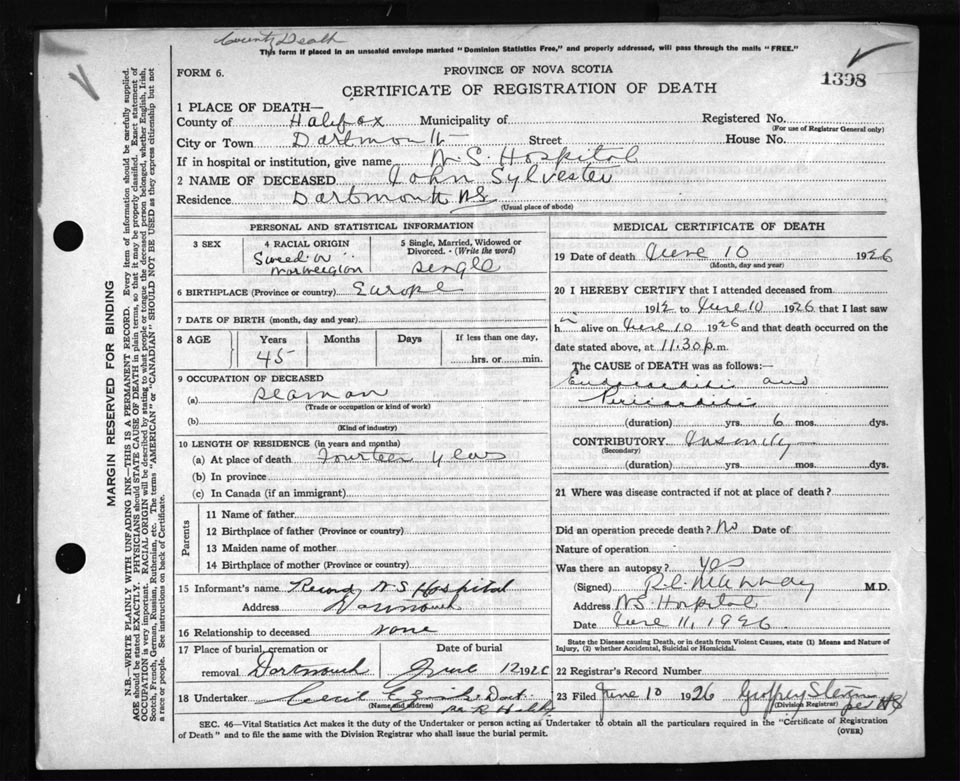 County Death
This form if placed in an unsealed envelope marked "Dominion Statistics Free," and properly addressed, will pass through the mails "FREE."
FORM 6.
PROVINCE OF NOVA SCOTIA
1398
CERTIFICATE OF REGISTRATION OF DEATH
1 PLACE OF DEATH—
County of Halifax Municipality of Registered No.
(For use of Registrar General only)
City or Town Dartmouth Street House No.
If in hospital or institution, give name N.S. Hospital
2 NAME OF DECEASED John Sylvester
Residence Dartmouth N.S.
(Usual place of abode)
PERSONAL AND STATISTICAL INFORMATION
3 SEX
4 RACIAL ORIGIN
Swede or
Norwegian
5 Single, Married, Widowed or
Divorced. - (Write the word)
single
6 BIRTHPLACE (Province or country) Europe
7 DATE OF BIRTH (month, day and year)
8 AGE
Years Months Days If less than one day,
45 hrs. or min.
9 OCCUPATION OF DECEASED
(a) seaman
(Trade or occupation or kind of work)
(b)
(Kind of industry)
10 LENGTH OF RESIDENCE (in years and months)
(a) At place of death fourteen years
(b) In province
(c) In Canada (if an immigrant)
Parents
11 Name of father
12 Birthplace of father (Province or country)
13 Maiden name of mother
14 Birthplace of mother (Province or country)
15 Informant's name Records N S Hospital
Address Dartmouth
16 Relationship to deceased none
17 Place of burial, cremation or Date of burial
removal Dartmouth June 12 1926
18 Undertaker Cecil E
(Name and address)
MEDICAL CERTIFICATE OF DEATH
19 Date of death June 10 1926
(Month, day and year)
20 I HEREBY CERTIFY that I attended deceased from
1912 to June 10 1926 that I last saw
him alive on June 10 1926 and that death occurred on
date stated above, at 11.30 p.m.
The CAUSE of DEATH was as follows:
Endocarditis and
Pericarditis
(duration) yrs. 6 mos. dys.
CONTRIBUTORY Insanity
(Secondary)
(duration) yrs. mos. dys.
21 Where was disease contracted if not at place of death?
Did an operation precede death? No Date of
Nature of operation
Was there an autopsy? Yes
(Signed) M.D.
Address N.S. Hospital
Date June 11, 1926
State the Disease causing Death, or in death from Violent Causes, state (1) Means and Nature of
Injury, (2) whether Accidental, Suicidal or Homicidal.
22 Registrar's Record Number
23 Filed June 10 1926
(Division Registrar)
SEC. 46—Vital Statistics Act makes it the duty of the Undertaker or person acting as Undertaker to obtain all the particulars required in the "Certificate of Registration
of Death" and to file the same with the Division Registrar who shall issue the burial permit. (OVER)
MARGIN RESERVED FOR BINDING
N.B.—WRITE PLAINLY WITH UNFADING INK—THIS IS A PERMANENT RECORD. Every item of information should be carefully supplied.
AGE should be stated EXACTLY. PHYSICIANS should STATE CAUSE OF DEATH in plain terms, so that it may be properly classified. Exact statement of
OCCUPATION is very important. RACIAL ORIGIN will be described by stating to what people or tongue the deceased person belonged, whether English, Irish,
Scotch, French, German, Russian, Ruthenian, etc. The terms "AMERICAN" or "CANADIAN" SHOULD NOT BE USED as they express citizenship but not
a race or people. See instructions on back of Certificate.